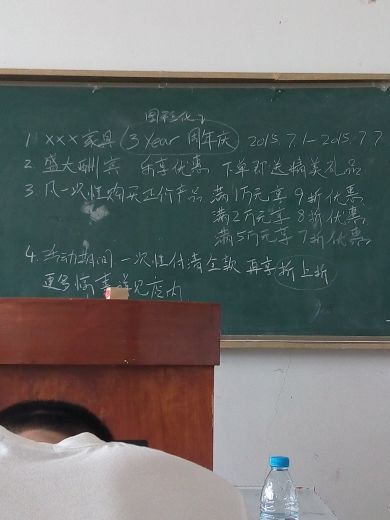 图形化
1. XXX家具 3 Year 周年庆 2015.7.1-2015.7.7
2. 盛大酬宾 乐享优惠 下单即送精美礼品
3. 凡一次性购买正价产品 满1万元享9折优惠
满2万元享8折优惠
满5万元享7折优惠
4. 活动期间一次性付清全款 再享折上折
更多惊喜详见店内